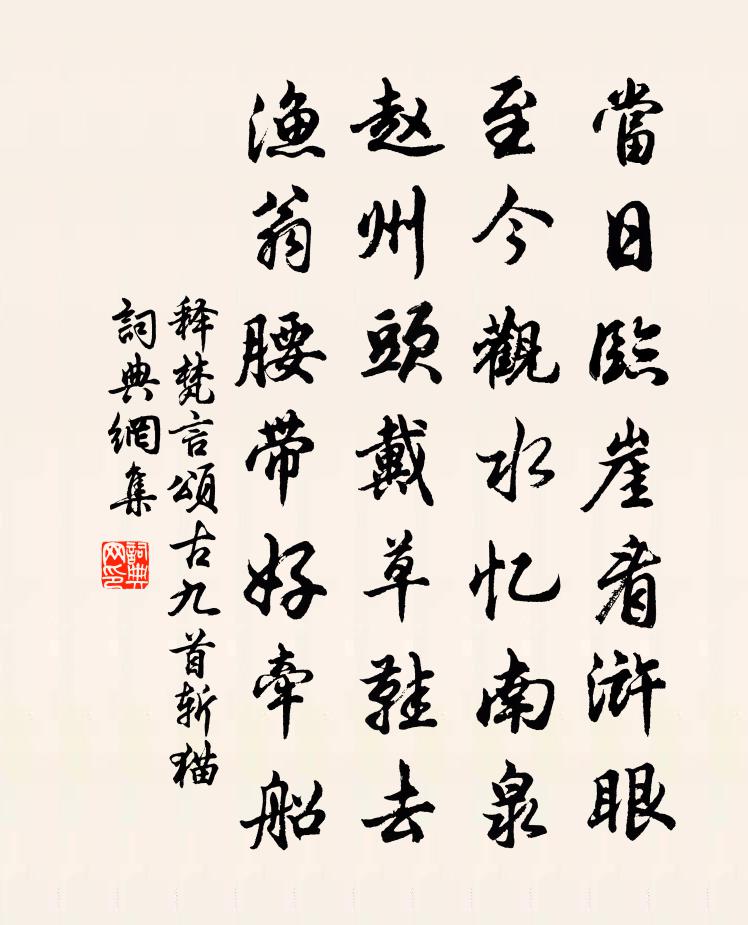 當日臨崖看滸眼
至今觀水忆南泉
赵州頭戴草鞋去
漁翁腰带好牽船
释梵言頌古九首斩猫
詞典網集
詞典网印